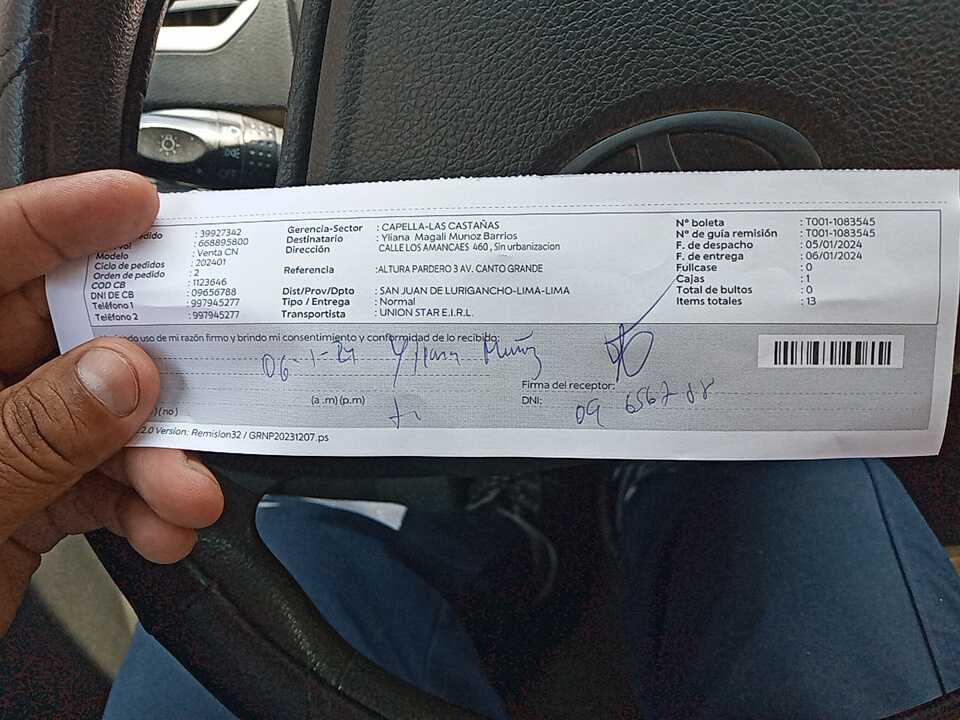 edido : 39927342
vol : 668895800
Modelo : Venta CN
Ciclo de pedidos : 202401
Orden de pedido : 2
COD CB : 1123646
DNI DE CB : 09656788
Teléfono 1 : 997945277
Teléfono 2 : 997945277
Gerencia-Sector : CAPELLA-LAS CASTAÑAS
Destinatario : Yliana Magali Munoz Barrios
Dirección CALLE LOS AMANCAES 460 , Sin urbanizacion
Referencia :ALTURA PARDERO 3 AV. CANTO GRANDE
Dist/Prov/Dpto : SAN JUAN DE LURIGANCHO-LIMA-LIMA
Tipo / Entrega : Normal
Transportista : UNION STAR E.I.R.L.
N° boleta : T001-1083545
N° de guía remisión : T001-1083545
F. de despacho : 05/01/2024
F. de entrega : 06/01/2024
Fullcase : 0
Cajas : 1
Total de bultos : 0
Items totales : 13
uso de mi razón firmo y brindo mi consentimiento y conformidad de lo recibido:
06-1-24 Yliana Muñoz
(a .m) (p.m)
Firma del receptor:
DNI: 09 6567 88
) ( no )
2.0 Version: Remision32 / GRNP20231207.ps